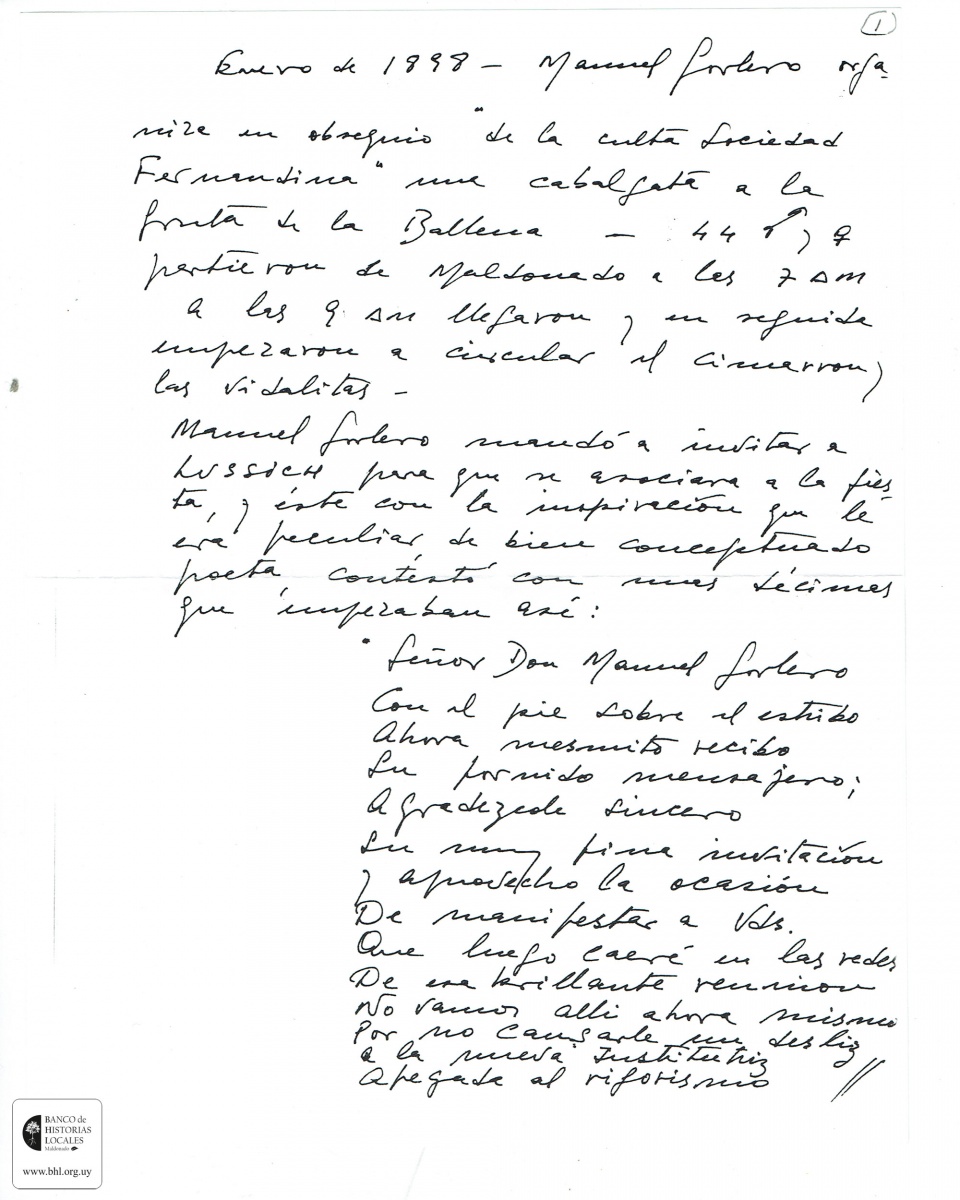 1
Enero de 1898 - Manuel Gorlero orga
niza en obsequio "de la culta Sociedad
Fernandina" una cabalgata a la
gruta de la Ballena - 44 ♂ y ♀
partieron de Maldonado a las 7 AM
A las 9 AM llegaron y en seguida
empezaron a circular el cimarron y
las vidalitas -
Manuel Gorlero mandó a invitar a
LUSSICH para que se asociara a la fies
ta, y éste con la inspiración que le
era peculiar de bien conceptuado
poeta, contestó con unas décimas
que empezaban así:
"Señor Don Manuel Gorlero
Con el pie sobre el estribo
Ahora mesmito recibo
Su fornido mensajero;
Agradezcole sincero
Su muy fina invitación
y aprovecho la ocasión
De manifestar a Vds.
Que luego caeré en las redes
De esa brillante reunion
No vamos alli ahora mismo
Por no causarle un desliz
a la nueva Institutriz
Apegada al rigorismo //
BANCO de
HISTORIAS
LOCALES
Maldonado
www.bhl.org.uy